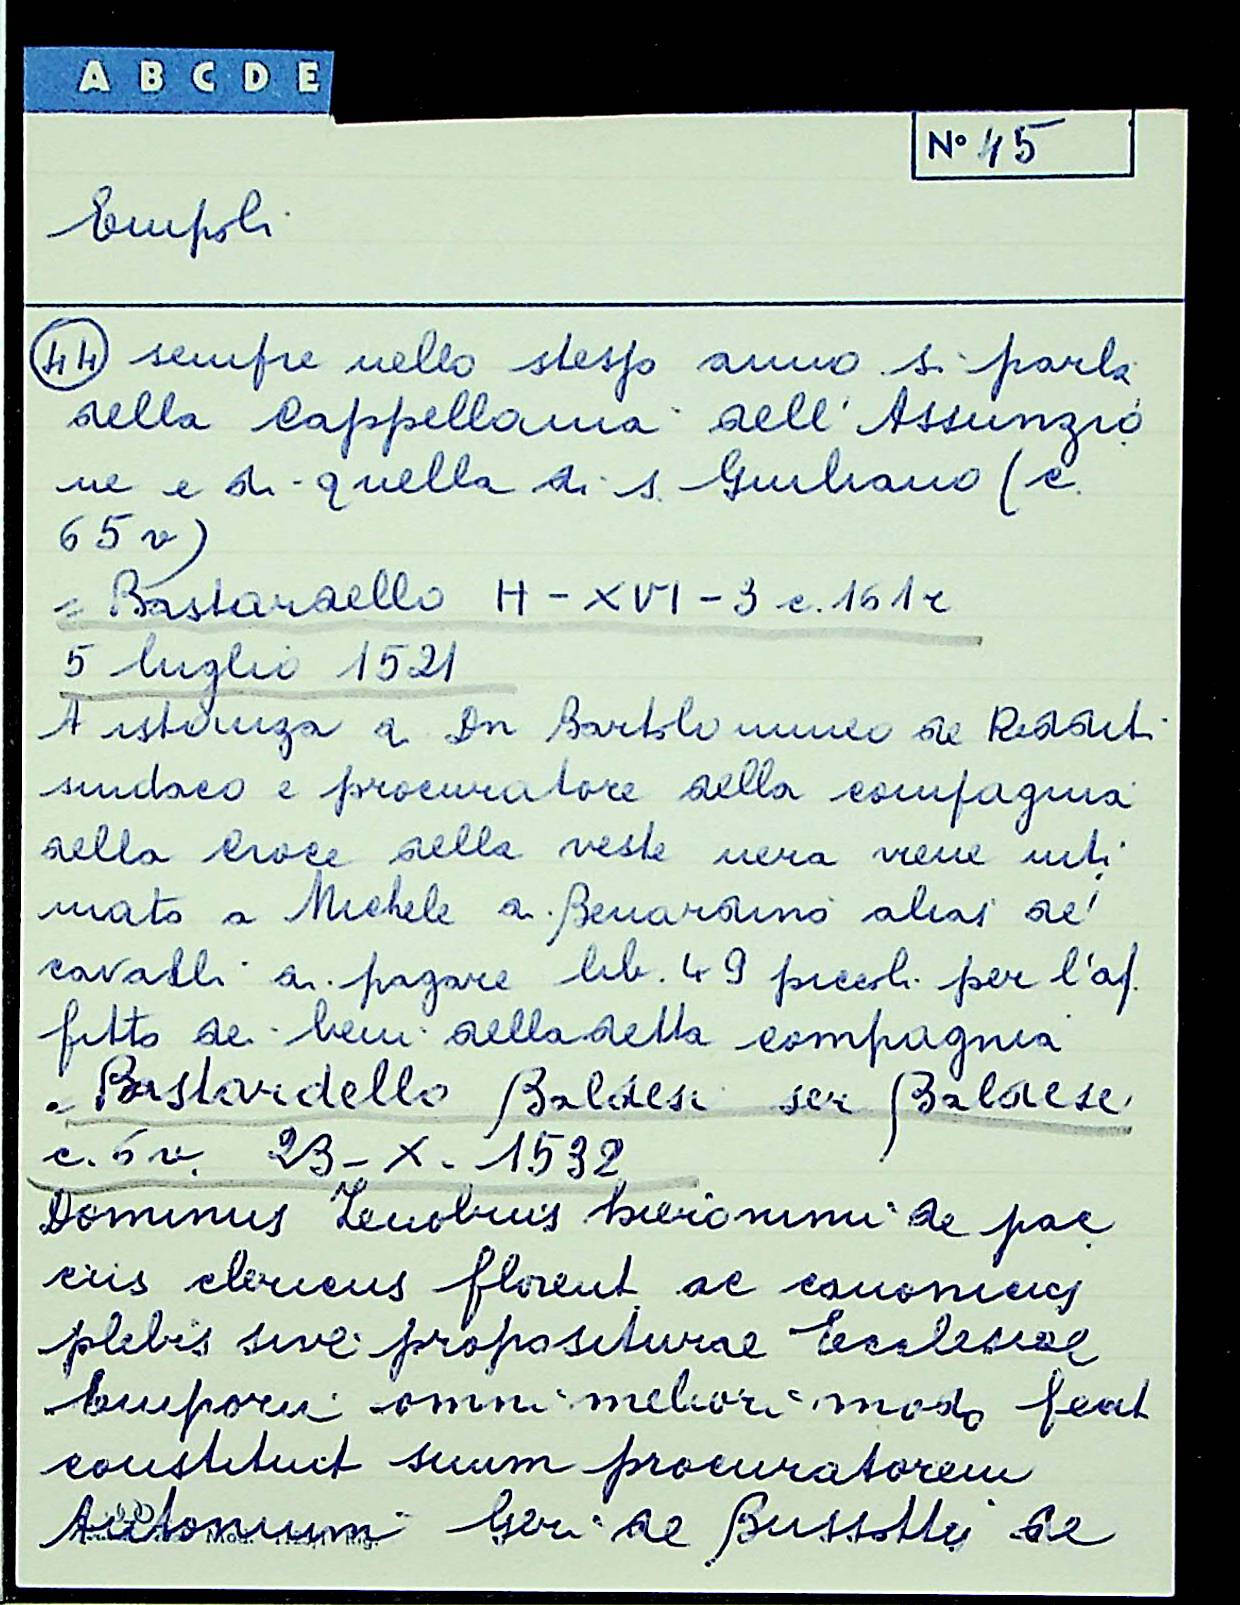 A B C D E
N° 45
Empoli
44 sempre nello stesso anno si parla
della Cappellania dell'Assunzio
ne e di quella di s. Giuliano (c.
65 v)
= Bastardello H - XVI - 3 c. 161 r
5 luglio 1521
A istanza di Dn Bartolommeo de Redditi
sindaco e procuratore della compagnia
della Croce della veste nera viene inti
mato a Michele di Benardino alias de'
cavalli di pagare lib. 49 piccoli per l'af
fitto dei beni della detta compagnia
= Bastardello Baldesi ser Baldese
c. 6 v. 23 - X - 1532
Dominus Zenobius hieronimi de pac
ciis clericus florent. ac canonicus
plebis sive propositurae Ecclesiae
Emporii omni meliori modo fecit
constituit suum procuratorem
Antonium Geri de Bussotti de